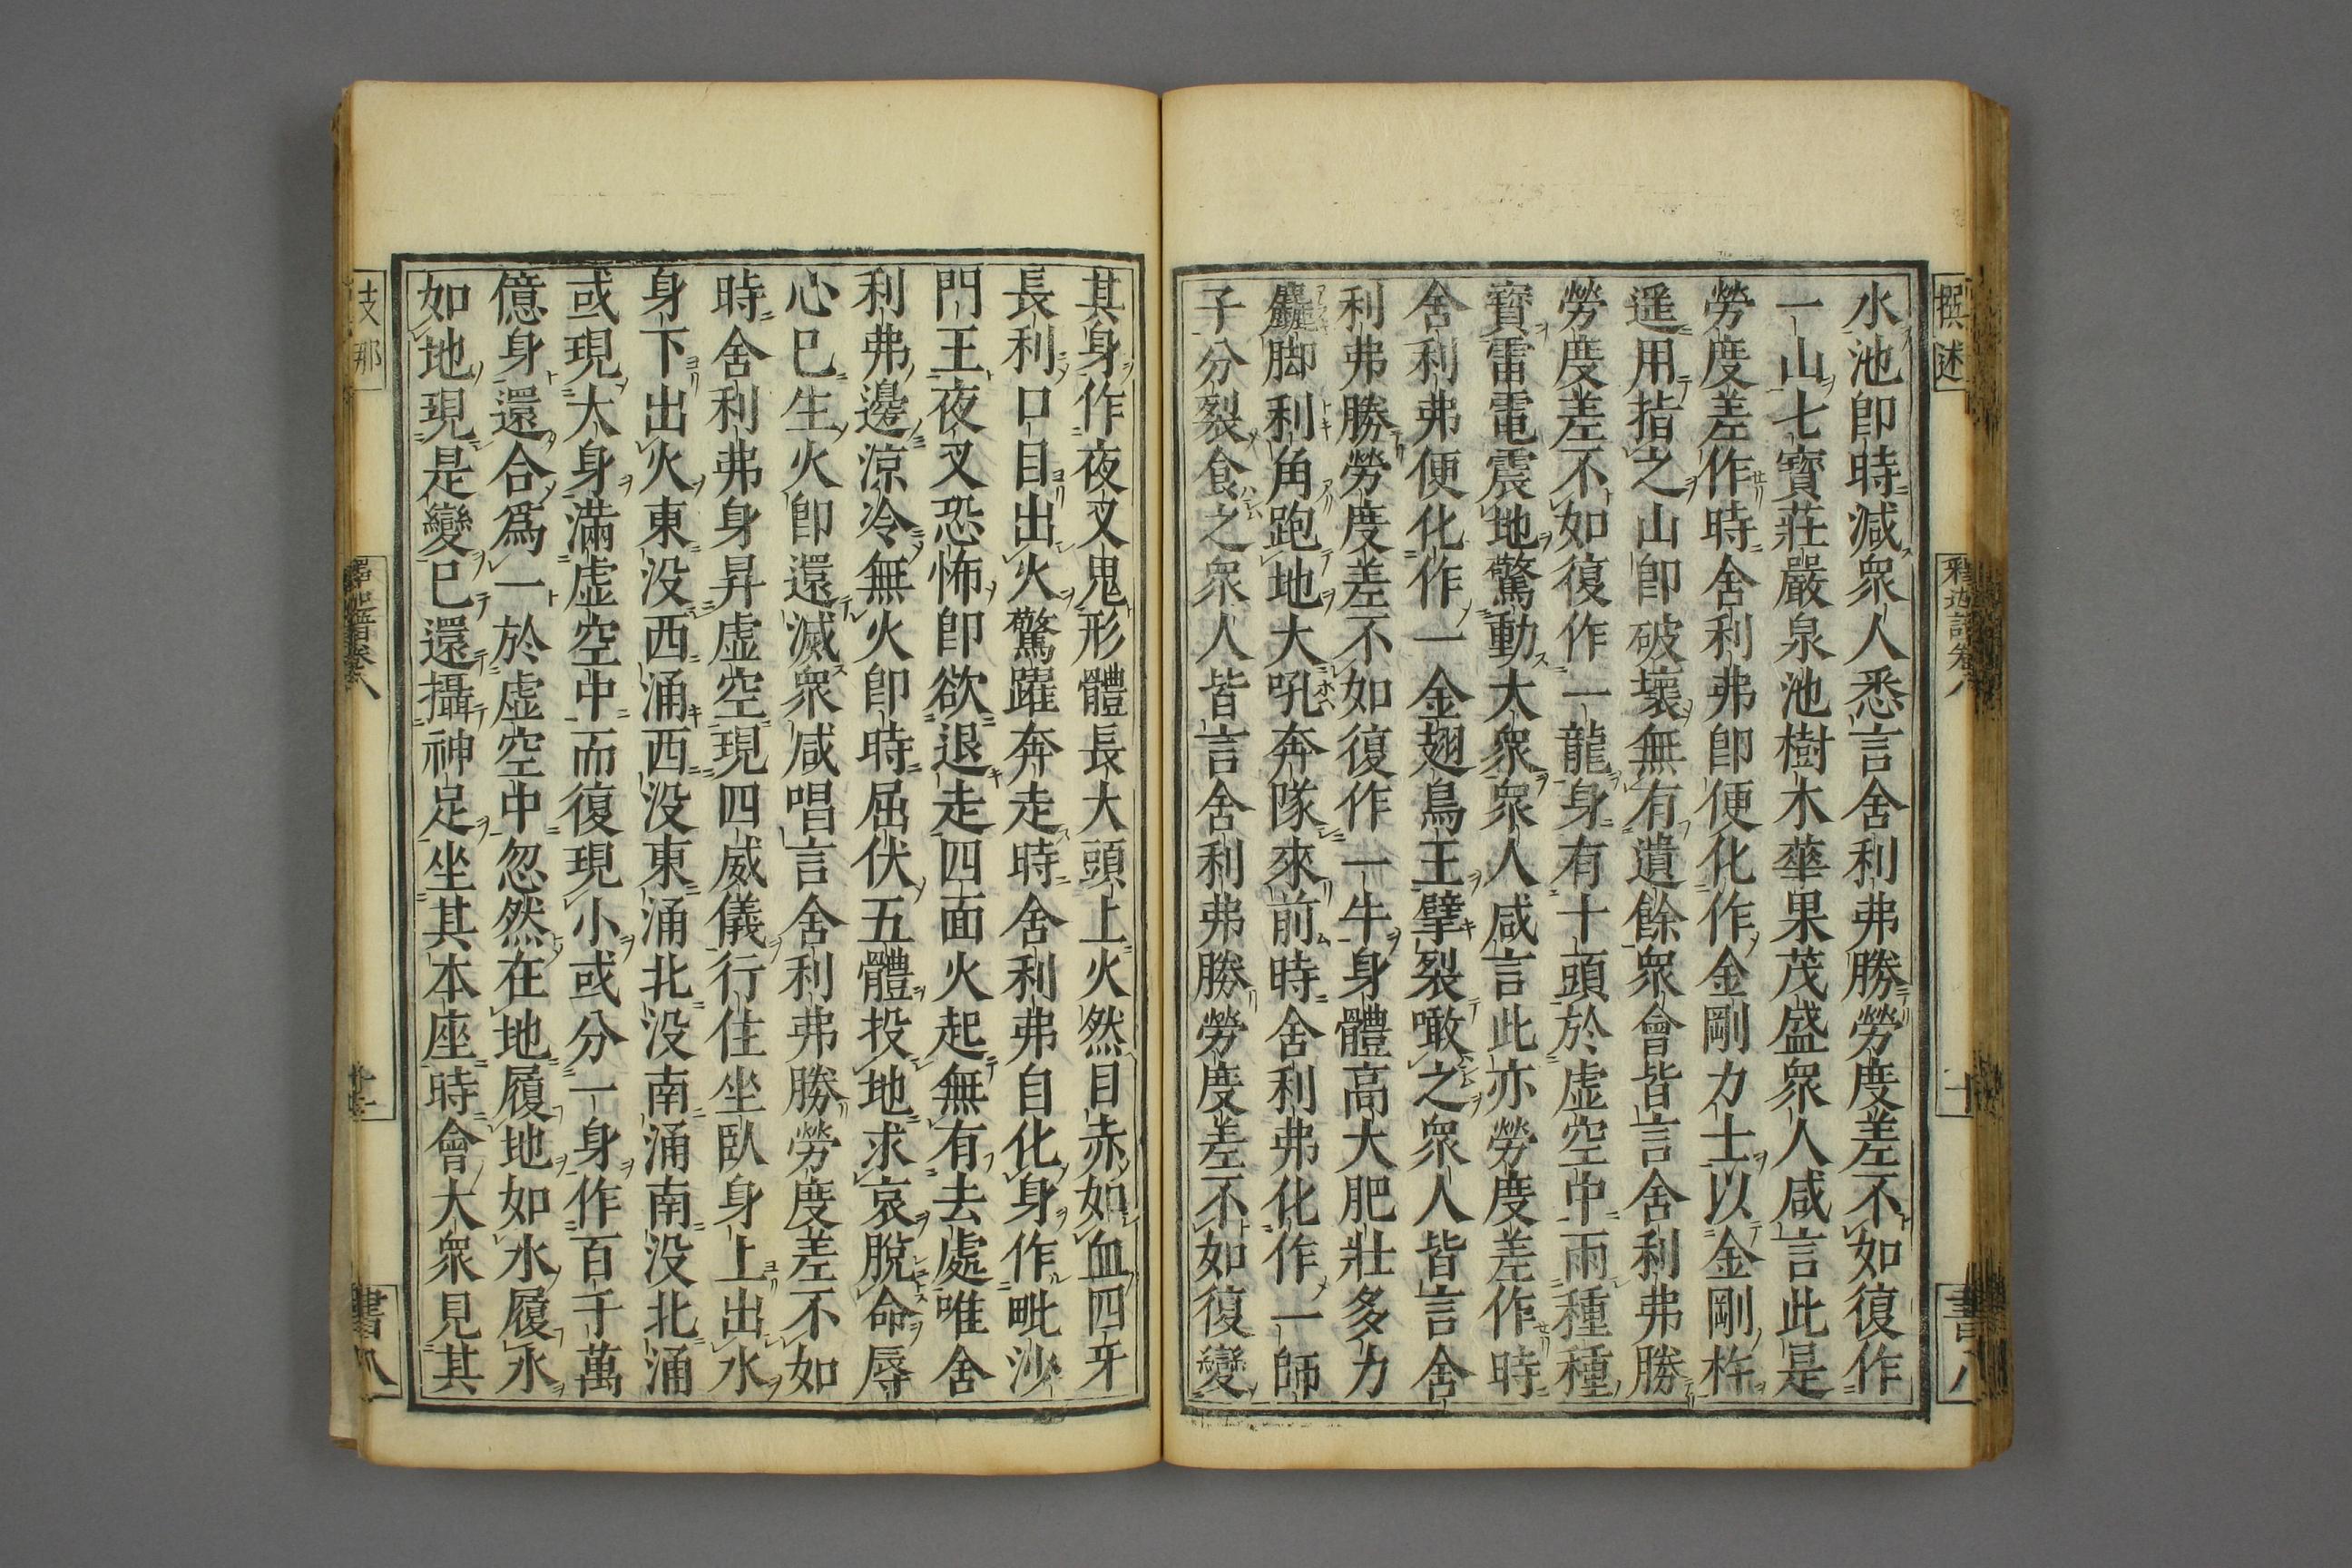 撰述
釋迦譜卷八
十
書八
水池卽時減衆人悉言舍利弗勝勞度差不如復作
一山七寶莊嚴泉池樹木華果茂盛衆人咸言此是
勞度差作時舍利弗卽便化作金剛力士以金剛杵
遥用指之山卽破壞無有遺餘衆會皆言舍利弗勝
勞度差不如復作一龍身有十頭於虛空中雨種種
寶雷電震地驚動大衆衆人咸言此亦勞度差作時
舍利弗便化作一金翅鳥王擘裂噉之衆人皆言舍
利弗勝勞度差不如復作一牛身體高大肥壯多力
麤脚利角跑地大吼奔隊來前時舍利弗化作一師
子分裂食之衆人皆言舍利弗勝勞度差不如復變
其身作夜叉鬼形體長大頭上火然目赤如血四牙
長利口目出火驚躍奔走時舍利弗自化身作毗沙
門王夜叉恐怖卽欲退走四面火起無有去處唯舍
利弗邊涼冷無火卽時屈伏五體投地求哀脫命辱
心已生火卽還滅衆咸唱言舍利弗勝勞度差不如
時舍利弗身昇虛空現四威儀行住坐臥身上出水
身下出火東没西涌西没東涌北没南涌南没北涌
或現大身滿虛空中而復現小或分一身作百千萬
億身還合爲一於虛空中忽然在地履地如水履水
如地現是變已還攝神足坐其本座時會大衆見其
支那
釋迦譜卷八
書八